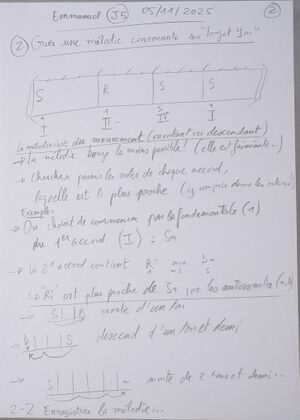 Emmanuel J5 05/11/2025 2
2) Créer une mélodie consonante sur "Target Jm"
S R S S
1 1 5 1
I II- IV I
La mélodie est du mouvement (ascendant ou descendant)
→ La mélodie bouge le moins possible! (elle est fainéante)
→ Chercher parmi les notes de chaque accord,
laquelle est la plus proche (y compris dans les
Exemple:
→ On choisit de commencer par la fondamentale (1)
du 1er accord (I) = Sa
→ Le 2e accord contient Ri ma
"Ri" est plus proche de Sa que les autres notes
→ S | | R monte d'un ton
→ D | | S descend d'un ton et demi
R
→ S | . | . | . | m monte de 2 tons et demi...
2-2 Enregistrer la mélodie...